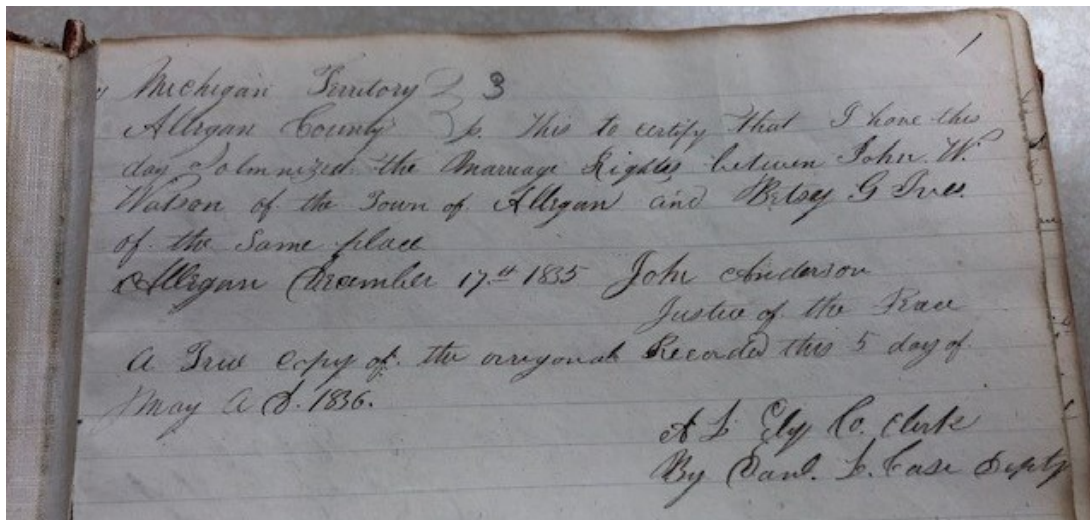 1
Michigan Territory } 3
Allegan County } ss. This to certify that I have this
day Solmnized the Marriage Rights between John W.
Watson of the Town of Allegan and Betsy G Ives.
of the Same place
Allegan December 17th 1835 John Anderson
Justice of the Peace
A True Copy of the orrigonal Recorded this 5 day of
May A D. 1836.
A L Ely Co. Clerk
By Danl. L. Case Depty